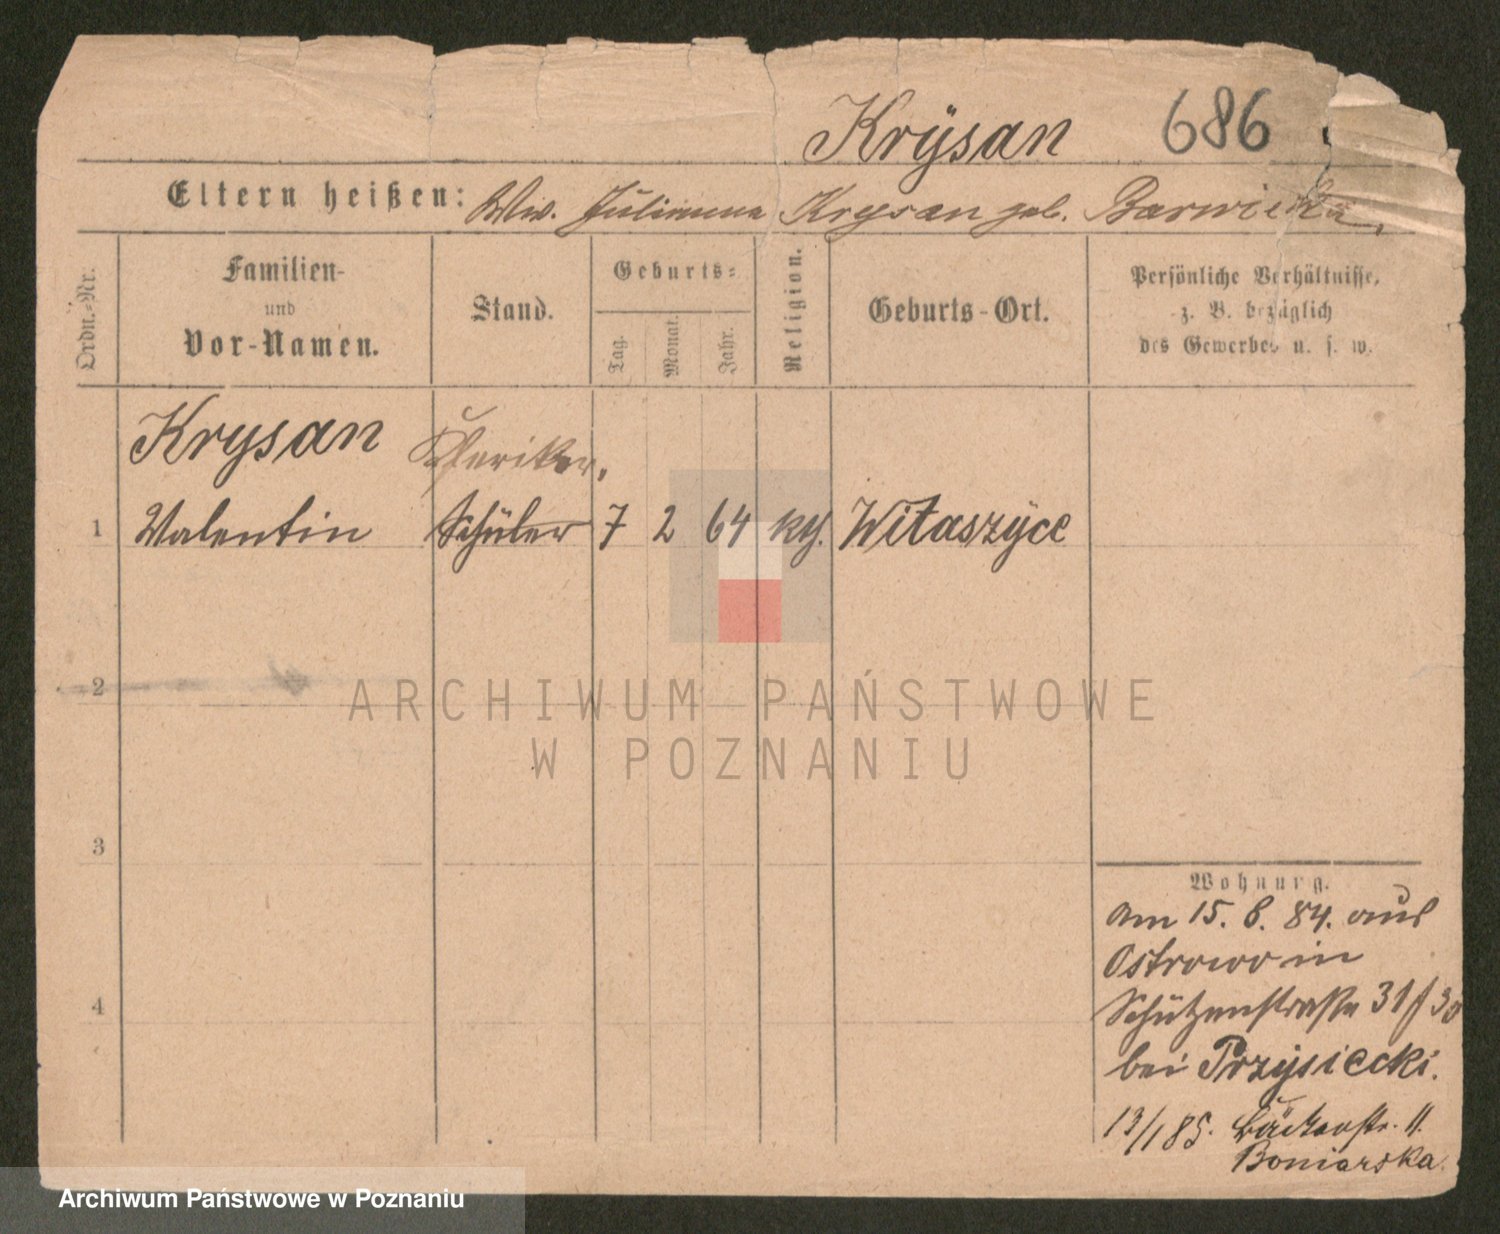 Krÿsan 686
Eltern heißen: Wiw. Julianna Krysan geb. Barwicka,
Ordn.-Nr.
Familien-
und
Vor-Namen.
Stand.
Geburts-
Tag. Monat. Jahr.
Religion.
Geburts-Ort.
Persönliche Verhältnisse,
z. B. bezüglich
des Gewerbes u. s. w.
Krysan
1 Valentin Schüler 7 2 64 kth. Witaszÿce
2
3
4
Wohnung.
am 15. 8. 84. aus
Ostrowo in
Schützenstraße 31/
bei Przÿsiecki.
13/1 85. Bäckerstr. 11.
Boniarska.
ARCHIWUM PAŃSTWOWE
W POZNANIU
Archiwum Państwowe w Poznaniu